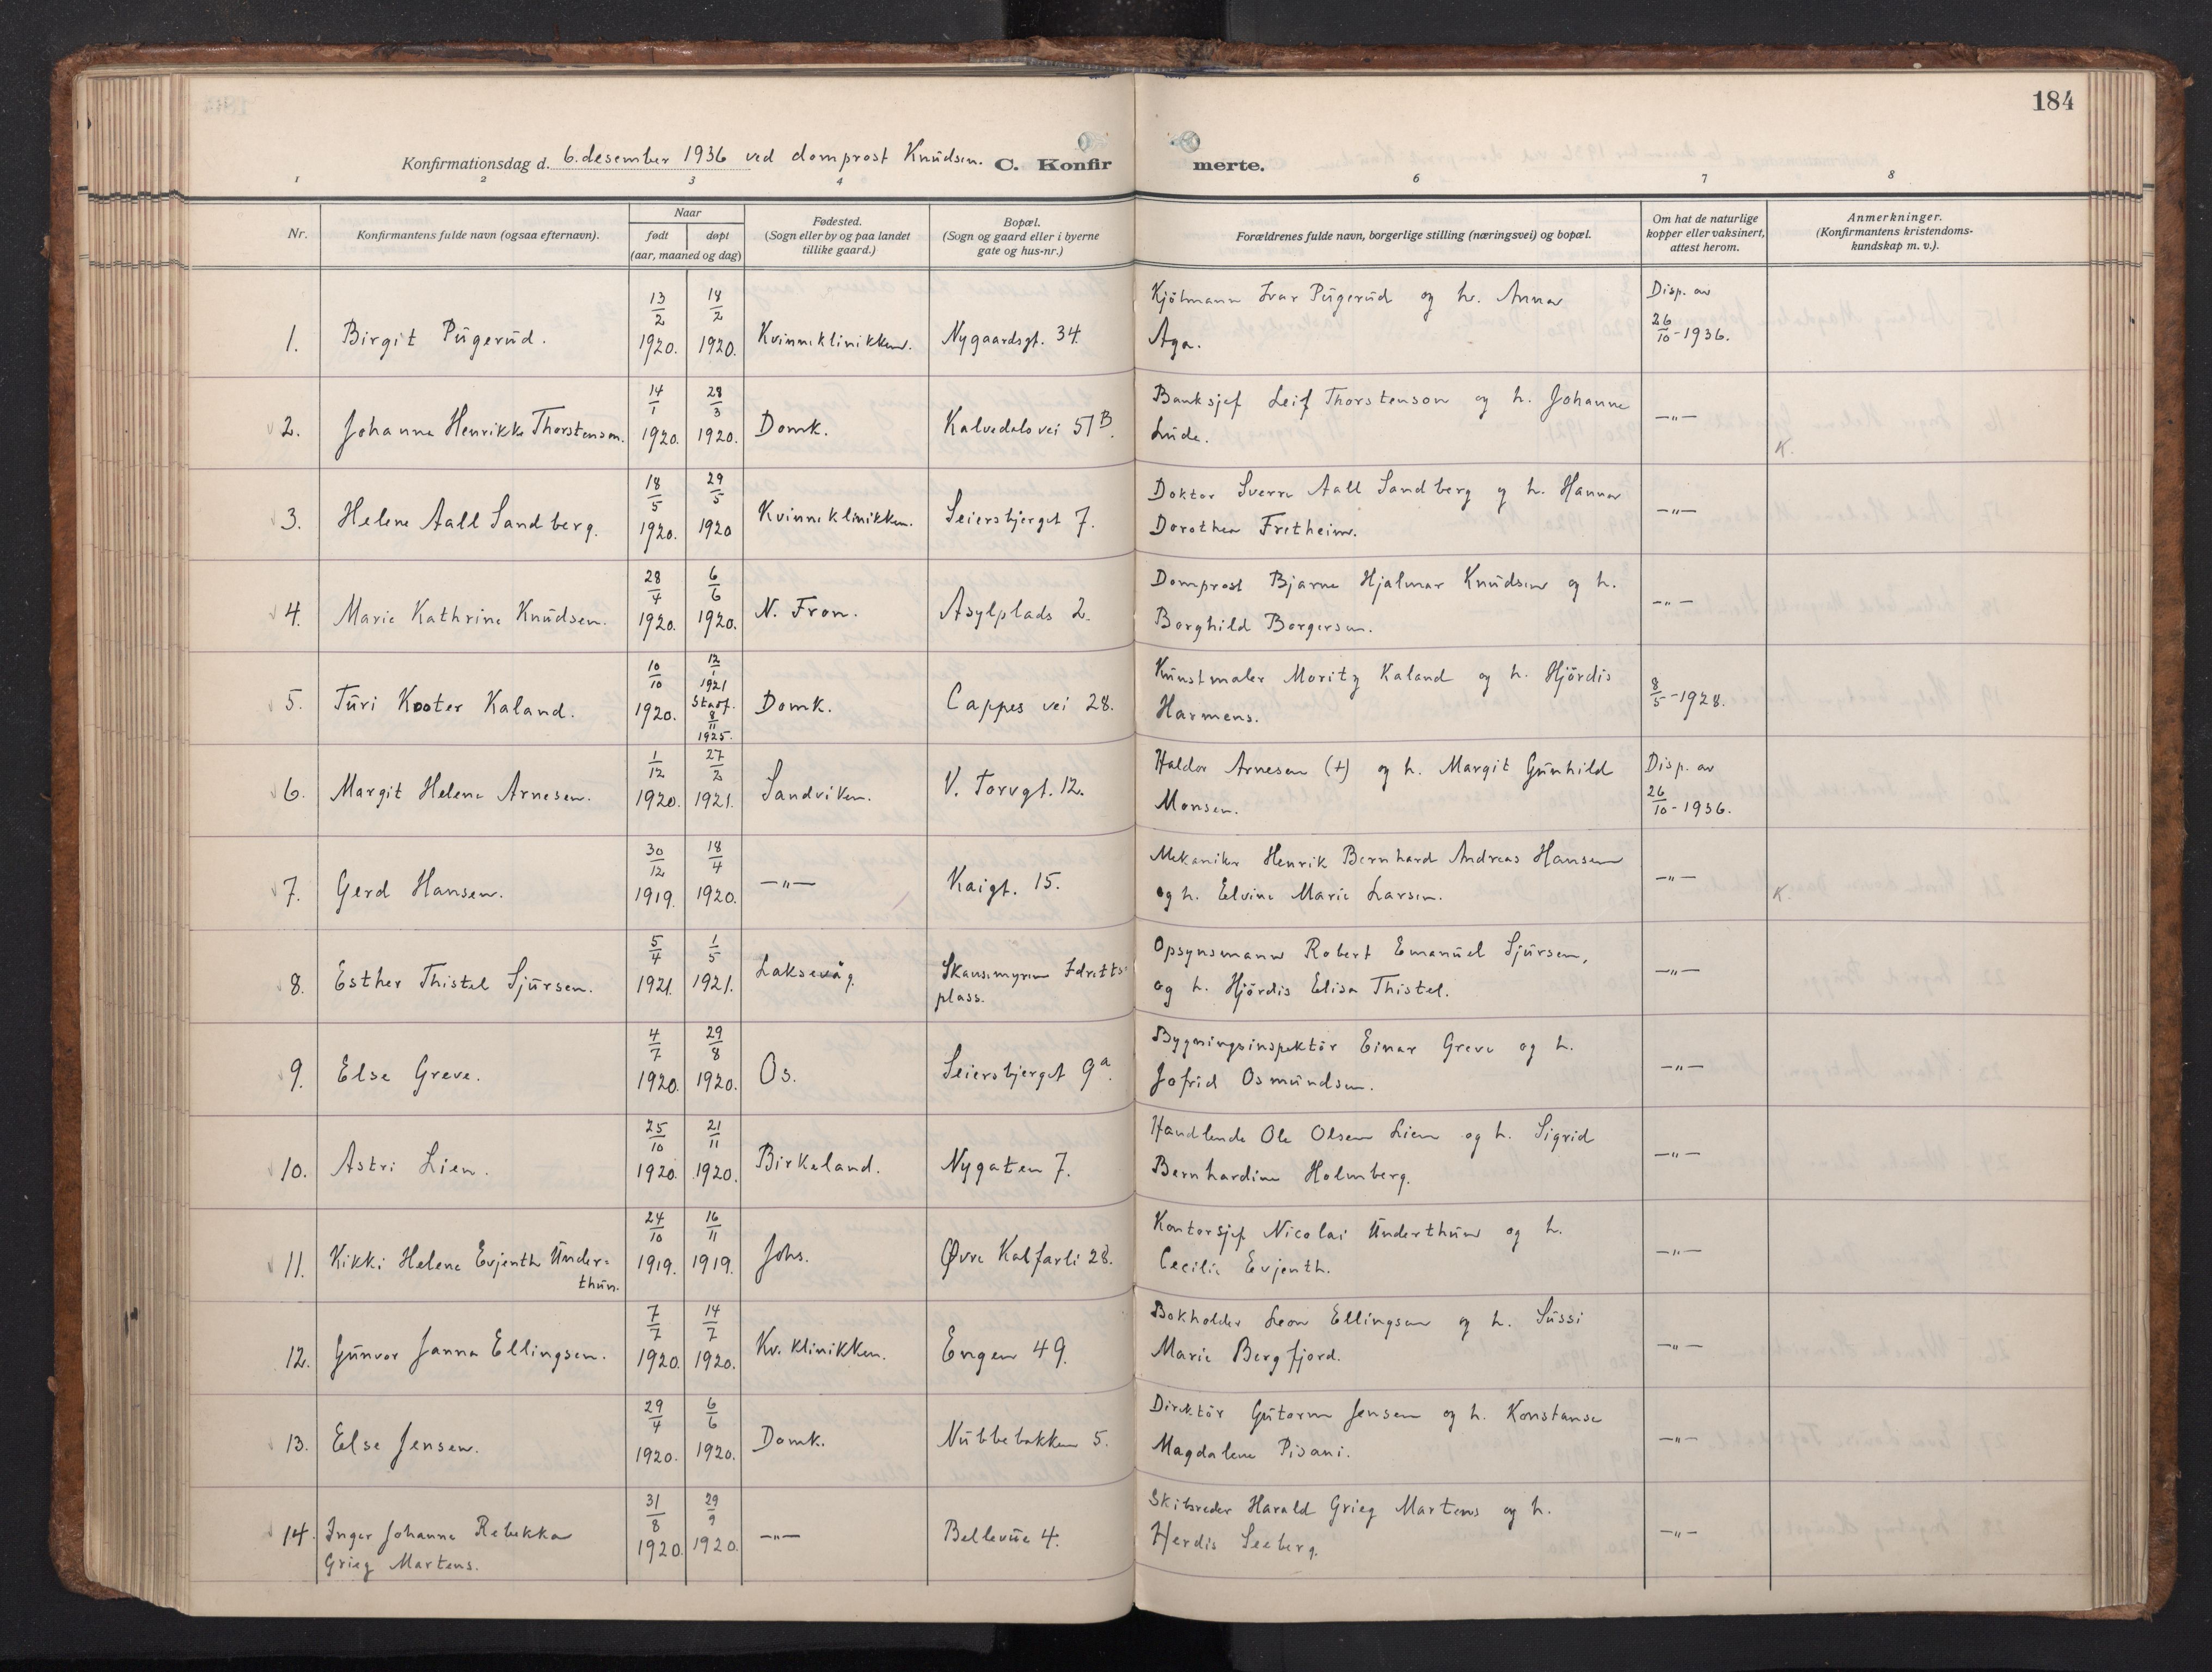 184
Konfirmationsdag d. 6. desember 1936 ved domprost Knudsen. C. Konfirmerte.
1 2 3 4 6 7 8
Nr.
Konfirmantens fulde navn (ogsaa efternavn).
Naar
født døpt
(aar, maaned og dag)
Fødested.
(Sogn eller by og paa landet
tillike gaard.)
Bopæl.
(Sogn og gaard eller i byerne
gate og hus-nr.)
Forældrenes fulde navn, borgerlige stilling (næringsvei) og bopæl.
Om hat de naturlige
kopper eller vaksinert,
attest herom.
Anmerkninger.
(Konfirmantens kristendoms-
kundskap m. v.).
1. Birgit Pugerud. 13/2 1920. 18/2 1920. Kvinneklinikken. Nygaardsgt. 34. Kjölmann Ivar Pugerud og h. Anna
Aga. Disp. av
26/10-1936.
2. Johanne Henrikke Thorstenson. 14/1 1920. 28/3 1920. Domk. Kalvedalsvei 51B. Banksjef Leif Thorstenson og h. Johanne
Lude. —"— K.
3. Helene Aall Sandberg. 18/5 1920. 29/5 1920 Kvinneklinikken. Seiersbjerget 7. Doktor Sverre Aall Sandberg og h. Hanna
Dorothea Fretheim. —"—
4. Marie Kathrine Knudsen. 28/4 1920. 6/6 1920. N. Fron. Asylplads 2. Domprost Bjarne Hjalmar Knudsen og h.
Borghild Borgersen. —"—
5. Turi Kooter Kaland. 10/10 1920. 12/1 1921 Stadf. 8/11 1925. Domk. Cappes vei 28. Kunstmaler Moritz Kaland og h. Hjördis
Harmens. 8/5-1928.
6. Margit Helene Arnesen. 1/12 1920. 27/2 1921. Sandviken. V. Torvgt. 12. Haldor Arnesen (+) og h. Margit Gunhild
Monsen. Disp. av
26/10-1936.
7. Gerd Hansen. 30/12 1919. 18/4 1920. —"— Kaigt. 15. Mekaniker Henrik Bernhard Andreas Hansen
og h. Elvine Marie Larsen. —"— K.
8. Esther Thistel Sjursen. 5/4 1921. 1/5 1921. Laksevåg. Skansemyren Idretts-
plass. Opsynsmann Robert Emanuel Sjursen,
og h. Hjördis Elisa Thistel. —"—
9. Else Greve. 4/7 1920. 29/8 1920. Os. Seiersbjerget 9a. Bygningsinspektör Einar Greve og h.
Jofrid Osmundsen. —"—
10. Astri Lien. 25/10 1920. 21/11 1920. Birkeland. Nygaten 7. Handlende Ole Olsen Lien og h. Sigrid
Bernhardine Holmberg. —"—
11. Kikki Helene Evjenth Under-
thun. 24/10 1919. 16/11 1919. Johs. Øvre Kalfarli 28. Kontorsjef Nicolai Underthun og h.
Cecilie Evjenth. —"—
12. Gunvor Janna Ellingsen. 7/7 1920. 14/7 1920. Kv. klinikken. Engen 49. Bokholder Leon Ellingsen og h. Sussi
Marie Bergfjord. —"—
13. Else Jensen. 29/4 1920. 6/6 1920. Domk. Nubbebakken 5. Direktör Gutorm Jensen og h. Konstanse
Magdalene Pisani. —"—
14. Inger Johanne Rebekka
Grieg Martens. 31/8 1920. 29/9 1920. —"— Bellevue 4. Skibsreder Harald Grieg Martens og h.
Herdis Seeberg. —"—